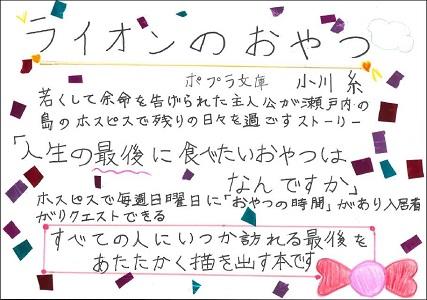 ライオンのおやつ
ポプラ文庫 小川糸
若くして余命を告げられた主人公が瀬戸内の
島のホスピスで残りの日々を過ごすストーリー
「人生の最後に食べたいおやつは
なんですか」
ホスピスで毎週日曜日に「おやつの時間」があり入居者
がリクエストできる
すべての人にいつか訪れる最後を
あたたかく描き出す本です